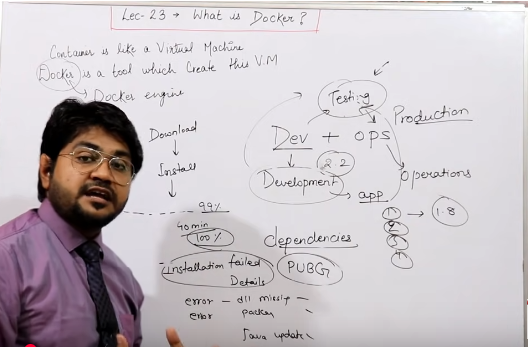 Lec-23 → What is Docker?
Container is like a Virtual Machine
Docker is a tool which Create this V.M
→ Docker engine
Download
Install
99%
40 min
100%
Installation failed
Details
error - dll missing
error
Java update
Testing
Production
Dev + ops
2.2
Development
app
Operations
1 → 1.8
2
3
4
dependencies
PUBG